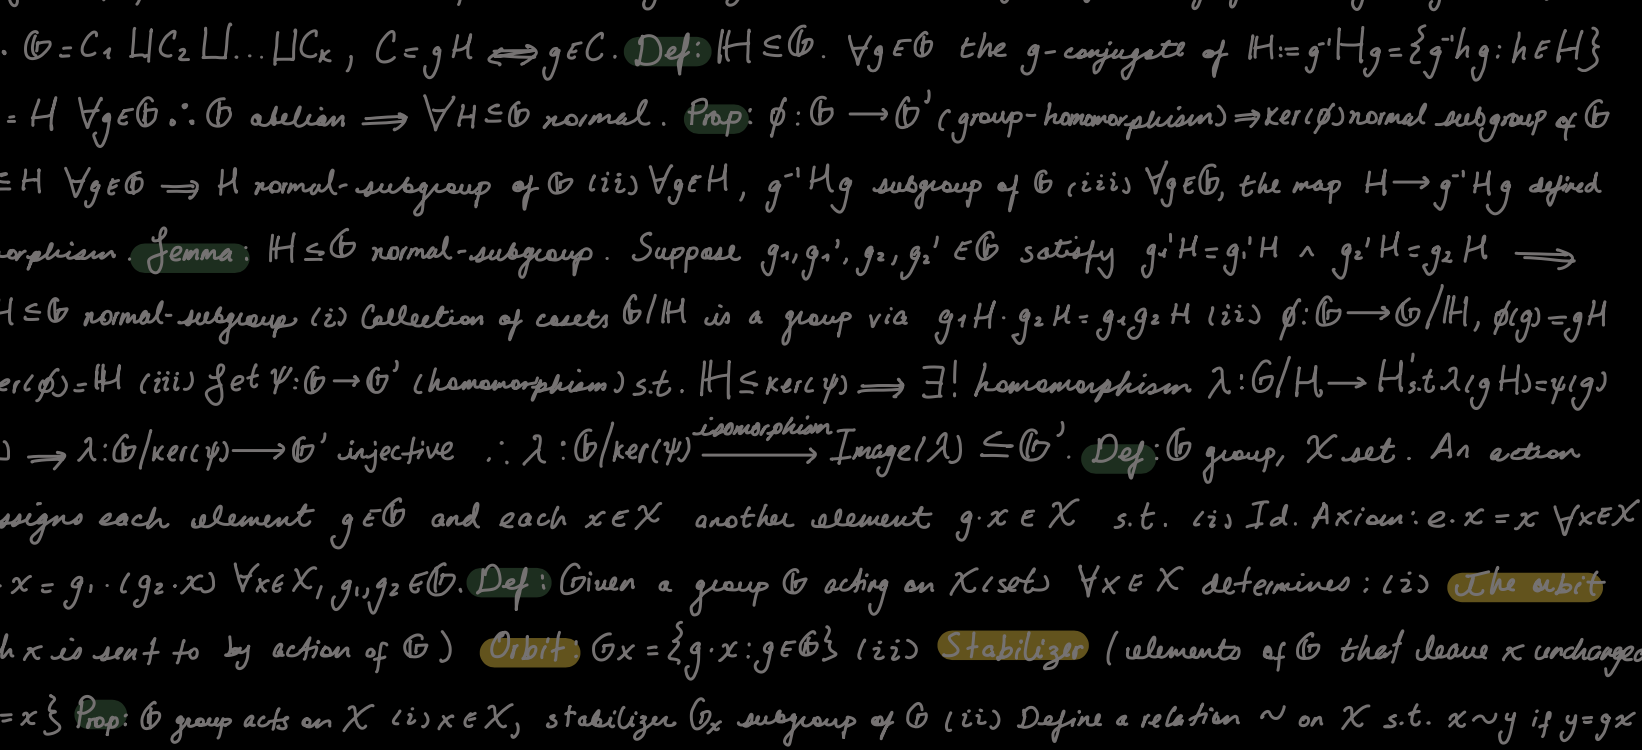 . G = C₁ ⊔ C₂ ⊔ ... ⊔ Cₖ , C = gH ⟺ g∈C. Def: H ≤ G. ∀g∈G the g-conjugate of H := g⁻¹Hg = {g⁻¹hg : h∈H}
= H ∀g∈G ∴ G abelian ⟹ ∀H≤G normal. Prop: ϕ: G → G' (group-homomorphism) ⟹ ker(ϕ) normal subgroup of G
≤ H ∀g∈G ⟹ H normal-subgroup of G (ii) ∀g∈H, g⁻¹Hg subgroup of G (iii) ∀g∈G, the map H → g⁻¹Hg defined
orphism. Lemma: H ≤ G normal-subgroup. Suppose g₁, g₁', g₂, g₂' ∈ G satisfy g₁'H = g₁'H ∧ g₂'H = g₂H ⟹
H ≤ G normal-subgroup (i) Collection of cosets G/H is a group via g₁H · g₂H = g₁g₂H (ii) ϕ: G → G/H, ϕ(g) = gH
er(ϕ) = H (iii) Let ψ: G → G' (homomorphism) s.t. H ≤ ker(ψ) ⟹ ∃! homomorphism λ: G/H → H' s.t λ(gH) = ψ(g)
) ⟹ λ: G/ker(ψ) → G' injective ∴ λ : G/ker(ψ) isomorphism → Image(λ) ≤ G'. Def: G group, X set. An action
ssigns each element g∈G and each x∈X another element g·x∈X s.t. (i) Id. Axiom: e·x = x ∀x∈X
·x = g₁·(g₂·x) ∀x∈X, g₁,g₂∈G. Def: Given a group G acting on X(set) ∀x∈X determines: (i) The orbit
h x is sent to by action of G) Orbit: Gx = {g·x : g∈G} (ii) Stabilizer (elements of G that leave x unchanged
= x} Prop: G group acts on X (i) x∈X, stabilizer Gₓ subgroup of G (ii) Define a relation ~ on X s.t. x~y if y=gx